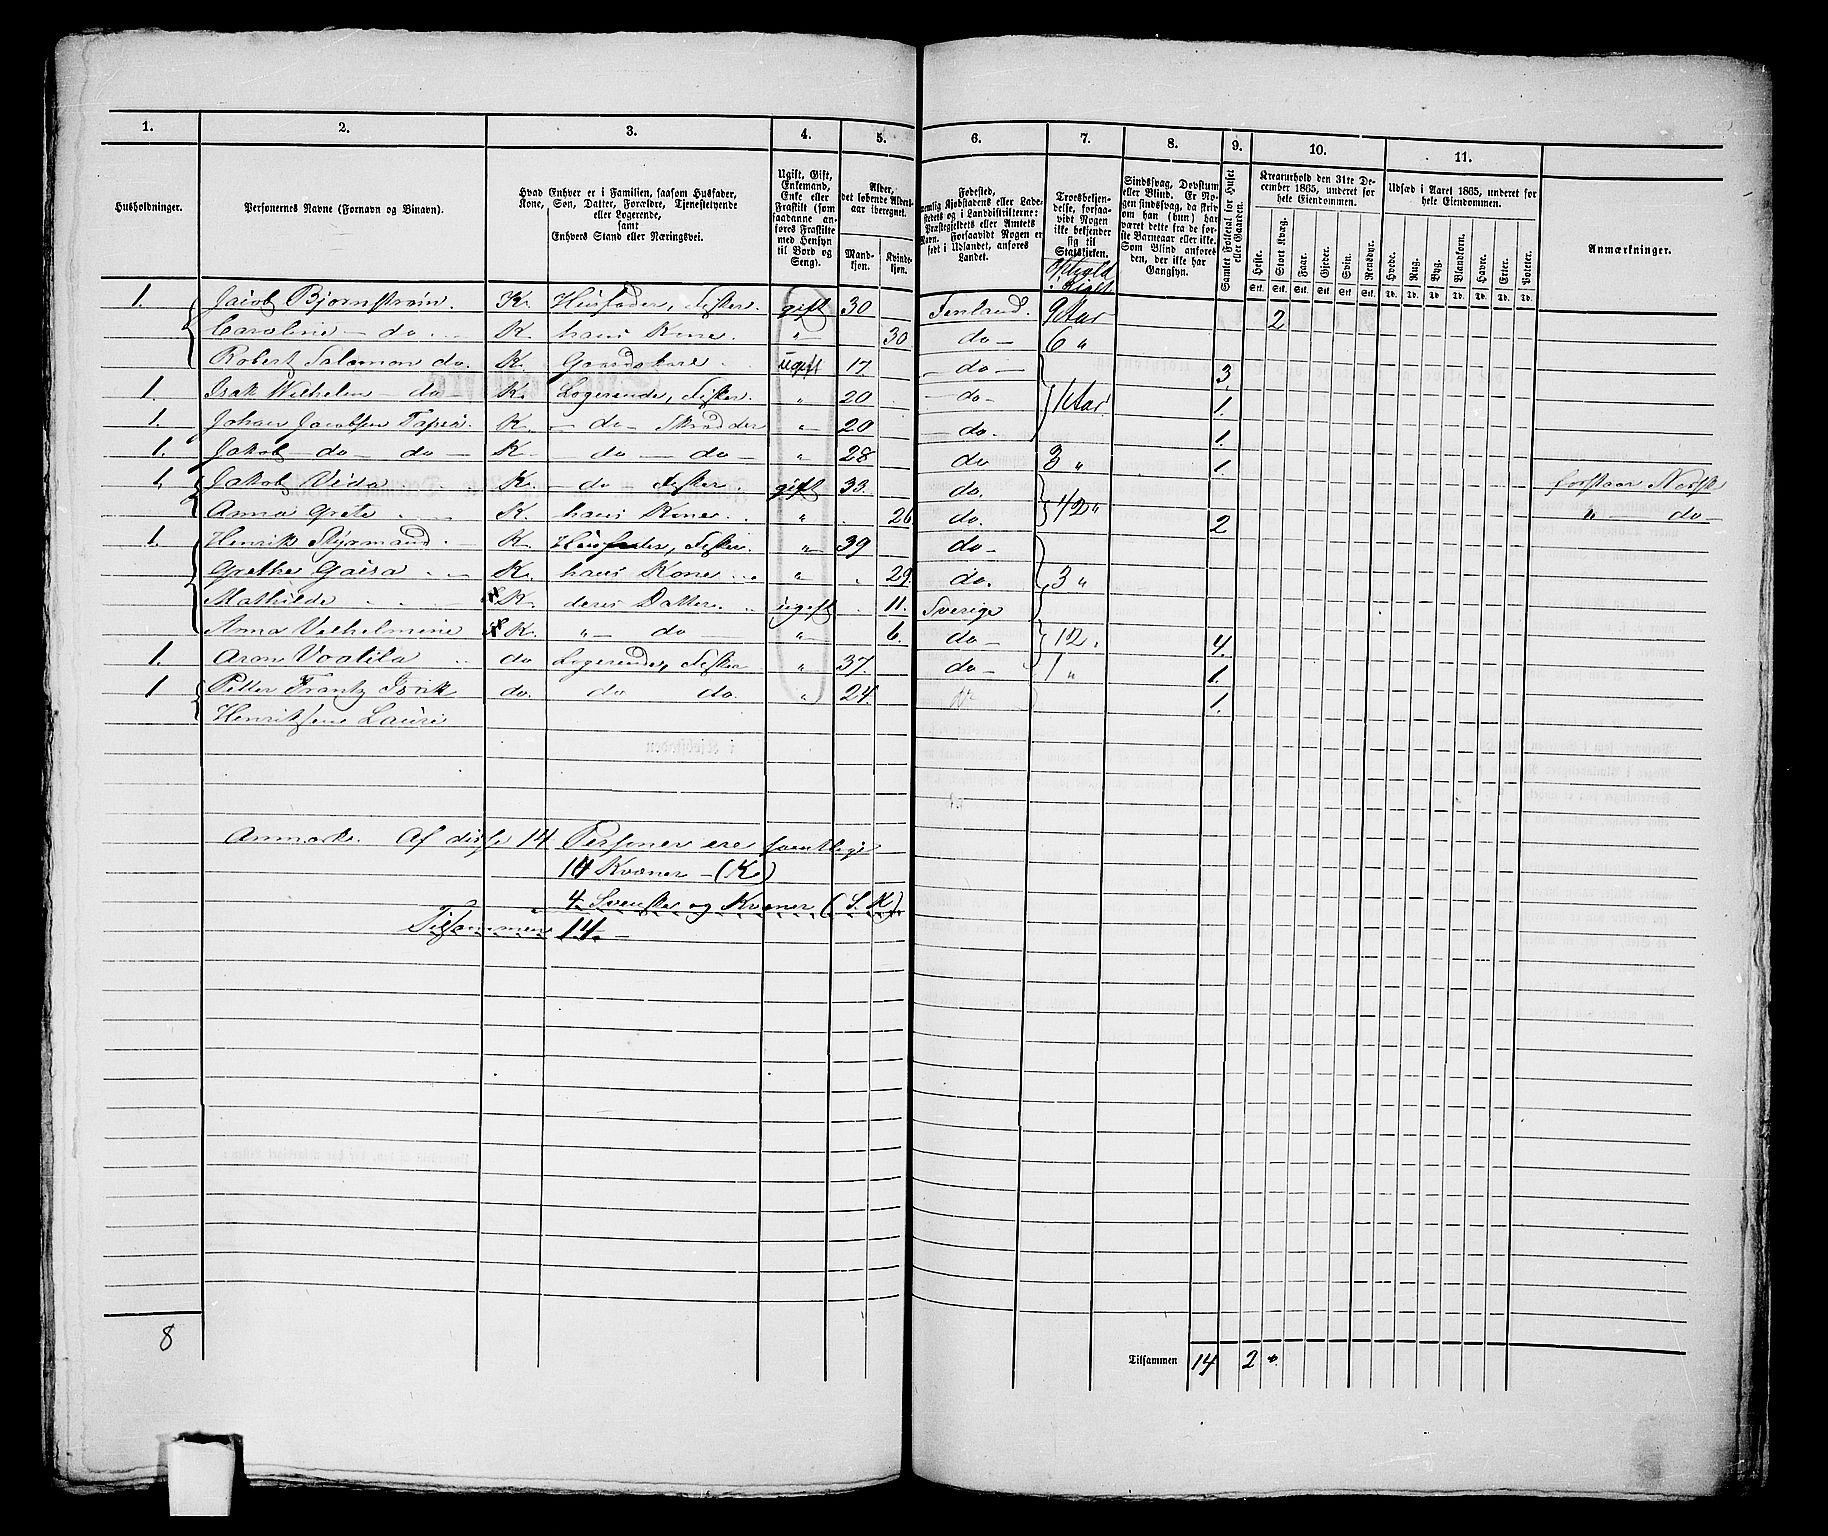 1. 2. 3. 4. 5. 6. 7. 8. 9. 10. 11.
Husholdninger.
Personernes Navne (Fornavn og Binavn).
Hvad Enhver er i Familien, saasom Husfader,
Kone, Søn, Datter, Forældre, Tjenestetyende
eller Logerende,
samt
Enhvers Stand eller Næringsvei.
Ugift, Gift,
Enkemand,
Enke eller
Fraskilt (som
saadanne an-
føres Fraskilte
med Hensyn
til Bord og
Seng).
Alder,
det løbende Alders-
aar iberegnet.
Mand-
kjøn.
Kvinde-
kjøn.
Fødested,
nemlig Kjøbstadens eller Lade-
stedets og i Landdistrikterne:
Præstegjeldets eller Amtets
Navn. Forsaavidt Nogen er
født i Udlandet, anføres
Landet.
Trosbekjen-
delse, forsaa-
vidt Nogen
ikke bekjender
sig til
Statskirken.
Sindssvag, Døvstum
eller Blind. Er No-
gen sindssvag, da hvis
om han (hun) har
været dette fra de før-
ste Barneaar eller ikke.
Som Blind anføres
den, der ikke har
Gangsyn.
Samlet Folketal for Huset
eller Gaarden.
Kreaturhold den 31te De-
cember 1865, underet for
hele Eiendommen.
Heste. Stort Kvæg. Faar. Gjeder. Svin. Rensdyr.
Stk. Stk. Stk. Stk. Stk. Stk.
Udsæd i Aaret 1865, underet for
hele Eiendommen.
Hvede. Rug. Byg. Blandkorn. Havre. Erter. Poteter.
Td. Td. Td. Td. Td. Td. Td.
Anmærkninger.
1. Jacob Bjørnstrøm. K. Husfader, Fisker. gift 30 Finland. 9 Aar 2
Caroline — do K. hans Kone. " 30. do — 6 "
Robert Salamon do. K. ugift 17 — do — 3.
1. Isak Wilhelm — do K. Logerende, Fisker. " 20 — do — 1 Aar. 1.
1. Johan Jacobsen K. — do — Skrædder " 20 — do. 1.
1. Jakob — do — do — K. — do — do — " 28 do 3 " 1.
1. Jakob K. — do Fisker. gift 33. do. forstaar Norsk
Anna Grete K. hans Kone " 26. do. 12 " 2 " — do —
1. Henrik Styrmand K. Husfader, Fisker " 39 do —
Grethe Gaisa K. hans Kone " 29. do. 3 "
Mathilde K. deres Datter ugift 11. Sverige
Anna Vilhelmine K. " — do — " 6. do 12. 4.
1. Aron do Logerende, Fisker " 37. do — 1 " 1.
1 Petter Frantz do. do do. " 24. 1.
Henriksen Lauri
Anmærk. Af disse 14 Personer ere samtlige
10 Kvæner — (K)
4 Svenske og Kvæner (S. K)
Tilsammen 14. —
8
Tilsammen 14 2